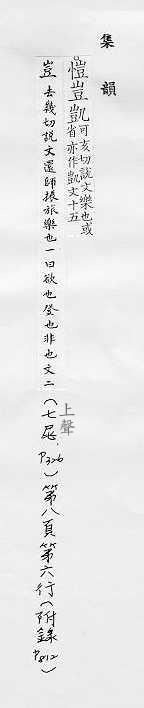 集韻
愷豈凱可亥切說文樂也或
省亦作凱文十五
豈去幾切說文還師振旅樂也一曰欲也登也非也文二(七尾,P326)第八頁第六行(附錄P812)
上聲